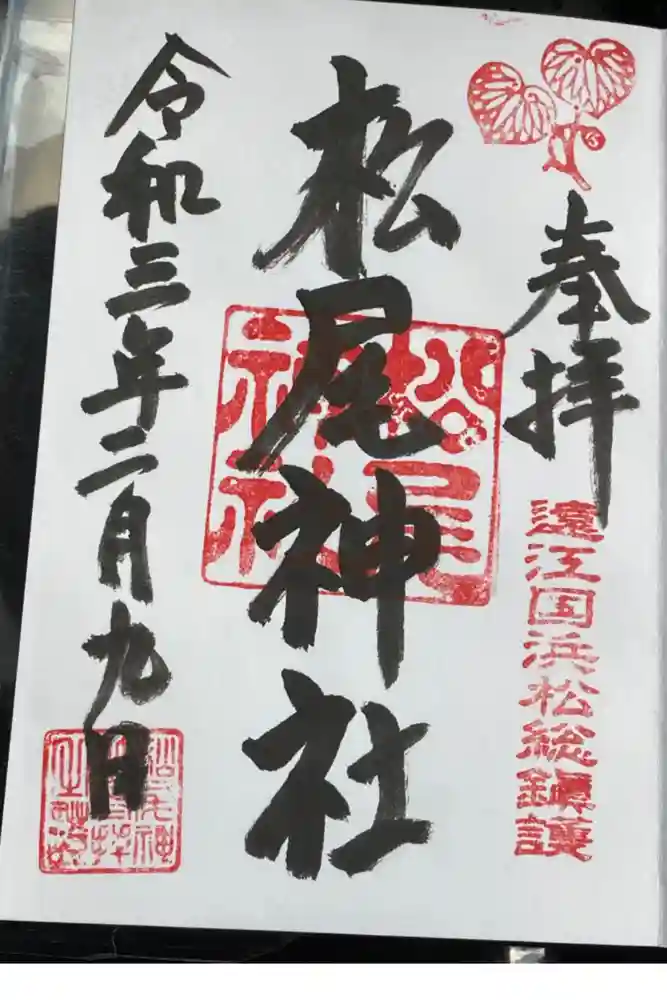 奉拝
遠江国浜松総鎮護
松尾神社
松尾神社
令和三年二月九日